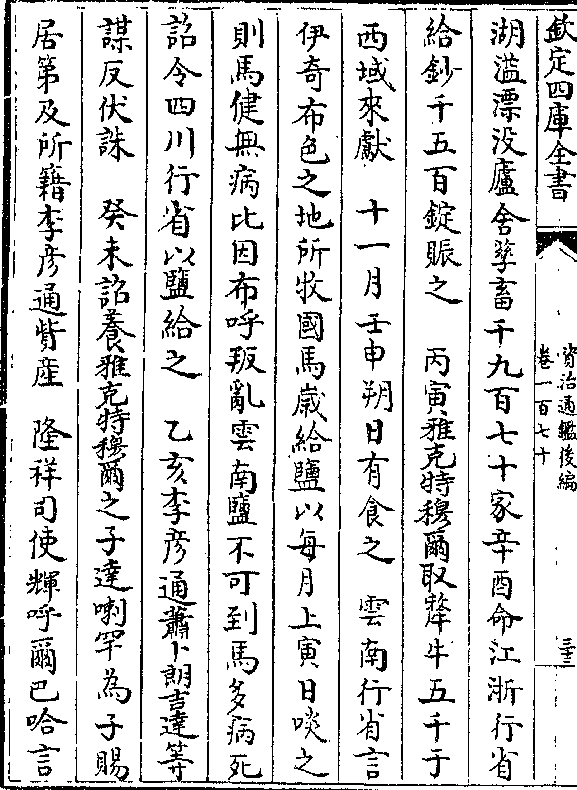 欽定四庫全書
資治通鑑後編
卷一百七十
三三
湖溢漂没廬舍孳畜千九百七十家辛酉命江浙行省
給鈔千五百錠賑之　丙寅雅克特穆爾取犛牛五千于
西域來獻　十一月壬申朔日有食之　雲南行省言
伊奇布色之地所牧國馬歲給鹽以每月上寅日啖之
則馬健無病比因布呼叛亂雲南鹽不可到馬多病死
詔令四川行省以鹽給之　乙亥李彦通蕭卜朗吉達等
謀反伏誅　癸未詔養雅克特穆爾之子達喇罕為子賜
居第及所籍李彦通貲産　隆祥司使輝呼爾巴哈言